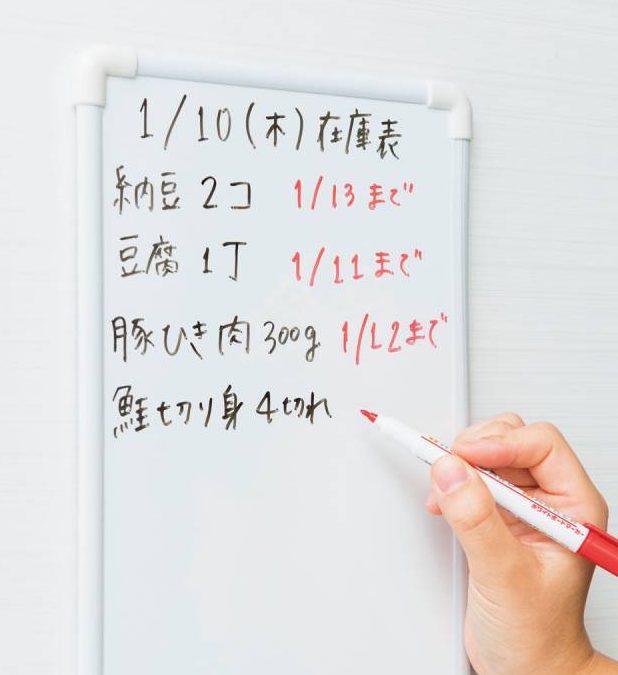 1/10(木)在庫表
納豆 2コ 1/13まで
豆腐 1丁 1/11まで
豚ひき肉 300g 1/12まで
鮭切り身 4切れ
ホワイトボードマーカー